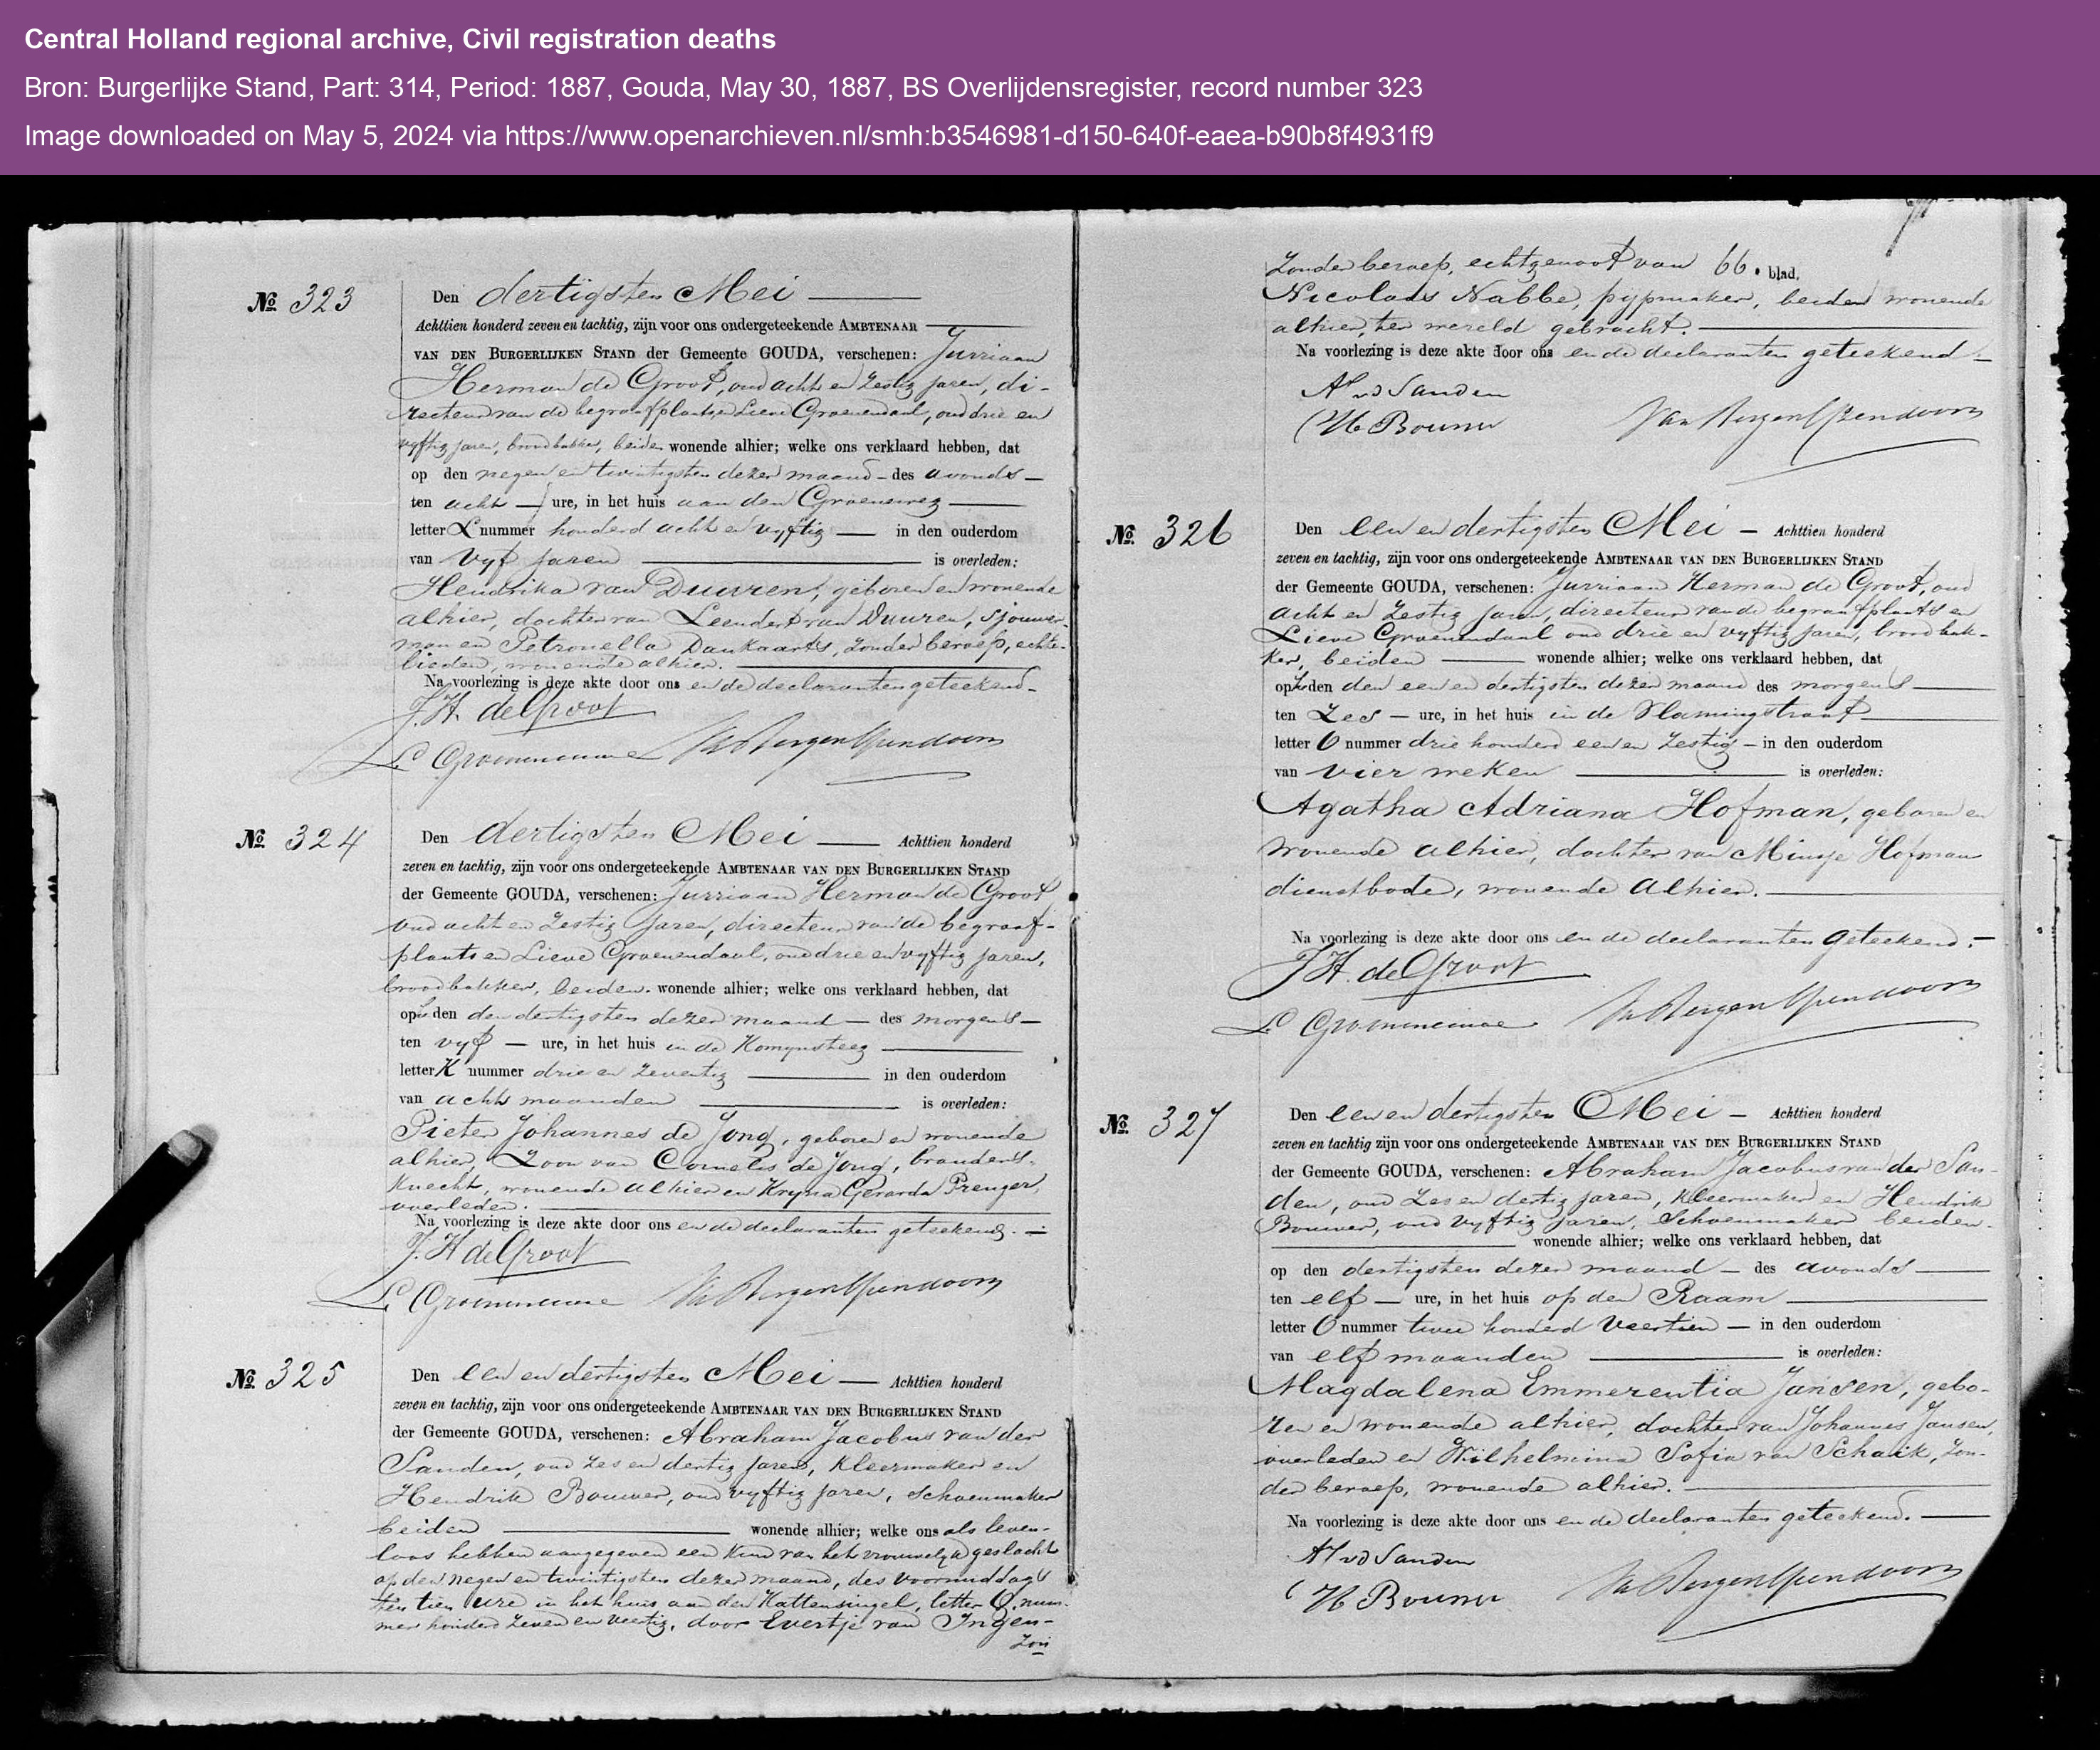 Central Holland regional archive, Civil registration deaths
Bron: Burgerlijke Stand, Part: 314, Period: 1887, Gouda, May 30, 1887, BS Overlijdensregister, record number 323
Image downloaded on May 5, 2024 via https://www.openarchieven.nl/smh:b3546981-d150-640f-eaea-b90b8f4931f9
No 323
Den dertigsten Mei
Achttien honderd zeven en tachtig, zijn voor ons ondergeteekende AMBTENAAR
VAN DEN BURGERLIJKEN STAND der Gemeente GOUDA, verschenen: Jurriaan
Herman de Groot, oud acht en zestig jaren, di-
recteur van de begraafplaats en Lieve Groenendaal, oud drie en
vyftig jaren, broodbakker, beiden wonende alhier; welke ons verklaard hebben, dat
op den negen en twintigsten dezer maand - des avonds
ten acht ure, in het huis aan den Groeneweg
letter L nummer honderd acht en vyftig in den ouderdom
van vyf jaren is overleden:
Hendrika van Duuren, geboren en wonende
alhier, dochter van Leendert van Duuren, sjouwer-
man en Petronella Dankaarts, zonder beroep, echte-
lieden, wonende alhier.
Na voorlezing is deze akte door ons en de declaranten geteekend.
J.H. de Groot
L Groenendaal Van Bergen IJzendoorn
No 324
Den dertigsten Mei Achttien honderd
zeven en tachtig, zijn voor ons ondergeteekende AMBTENAAR VAN DEN BURGERLIJKEN STAND
der Gemeente GOUDA, verschenen: Jurriaan Herman de Groot
oud acht en zestig jaren, directeur van de begraaf-
plaats en Lieve Groenendaal, oud drie en vyftig jaren,
broodbakker, beiden wonende alhier; welke ons verklaard hebben, dat
op heden den dertigsten dezer maand des morgens
ten vyf ure, in het huis in de Komynsteeg
letter K nummer drie en zeventig in den ouderdom
van acht maanden is overleden:
Pieter Johannes de Jong, geboren en wonende
alhier, zoon van Cornelis de Jong, branders-
knecht, wonende alhier en Kryna Gerarda Prenger,
overleden.
Na voorlezing is deze akte door ons en de declaranten geteekend.
J.H de Groot
L. Groenendaal Van Bergen IJzendoorn
No 325
Den een en dertigsten Mei Achttien honderd
zeven en tachtig, zijn voor ons ondergeteekende AMBTENAAR VAN DEN BURGERLIJKEN STAND
der Gemeente GOUDA, verschenen: Abraham Jacobus van der
Sanden, oud zes en dertig jaren, kleermaker en
Hendrik Bouwer, oud vyftig jaren, schoenmaker
beiden wonende alhier; welke ons als leven-
loos hebben aangegeven een kind van het vrouwelyk geslacht
op den negen en twintigsten dezer maand, des voormiddags
ten tien ure in het huis aan den Kattensingel, letter Q. num-
mer honderd zeven en veertig, door Evertje van Ingen-
zon
66. blad.
zonder beroep, echtgenoot van
Nicolaas Nabbe, pypmaker, beiden wonende
alhier, ter wereld gebracht.
Na voorlezing is deze akte door ons en de declaranten geteekend
A J vd Sanden
H Bouwer Van Bergen IJzendoorn
No 326
Den een en dertigsten Mei - Achttien honderd
zeven en tachtig, zijn voor ons ondergeteekende AMBTENAAR VAN DEN BURGERLIJKEN STAND
der Gemeente GOUDA, verschenen: Jurriaan Herman de Groot, oud
acht en zestig jaren, directeur van de begraafplaats en
Lieve Groenendaal oud drie en vyftig jaren, broodbak-
ker, beiden wonende alhier; welke ons verklaard hebben, dat
op heden den een en dertigsten dezer maand des morgens
ten zes - ure, in het huis in de Vlamingstraat
letter O nummer drie honderd een en zestig - in den ouderdom
van vier weken is overleden:
Agatha Adriana Hofman, geboren en
wonende alhier, dochter van Minsje Hofman
dienstbode, wonende alhier.
Na voorlezing is deze akte door ons en de declaranten geteekend.
J H. de Groot
L Groenendaal Van Bergen IJzendoorn
No 327
Den een en dertigsten Mei - Achttien honderd
zeven en tachtig zijn voor ons ondergeteekende AMBTENAAR VAN DEN BURGERLIJKEN STAND
der Gemeente GOUDA, verschenen: Abraham Jacobus van der San-
den, oud zes en dertig jaren, kleermaker en Hendrik
Bouwer, oud vyftig jaren, schoenmaker beiden
wonende alhier; welke ons verklaard hebben, dat
op den dertigsten dezer maand - des avonds
ten elf - ure, in het huis op den Raam
letter O nummer twee honderd veertien - in den ouderdom
van elf maanden is overleden:
Magdalena Emmerentia Jansen, gebo-
ren en wonende alhier, dochter van Johannes Jansen,
overleden en Wilhelmina Sofia van Schaik, zon-
der beroep, wonende alhier.
Na voorlezing is deze akte door ons en de declaranten geteekend.
A J vd Sanden
H Bouwer Van Bergen IJzendoorn